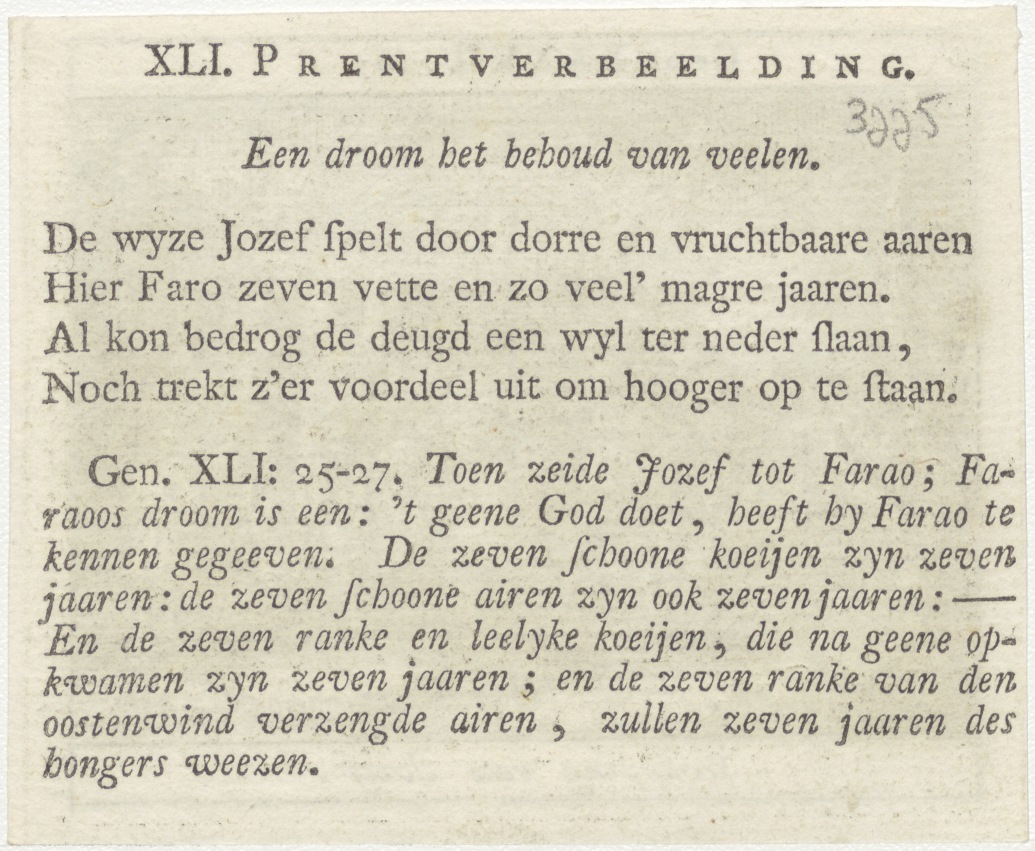 XLI. PRENTVERBEELDING.
3225
Een droom het behoud van veelen.
De wyze Jozef ſpelt door dorre en vruchtbaare aaren
Hier Faro zeven vette en zo veel’ magre jaaren.
Al kon bedrog de deugd een wyl ter neder ſlaan,
Noch trekt z’er voordeel uit om hooger op te ſtaan.
Gen. XLI: 25-27. Toen zeide Jozef tot Farao; Fa-
raoos droom is een: ’t geene God doet, heeft hy Farao te
kennen gegeeven. De zeven ſchoone koeijen zyn zeven
jaaren: de zeven ſchoone airen zyn ook zeven jaaren: —
En de zeven ranke en leelyke koeijen, die na geene op-
kwamen zyn zeven jaaren; en de zeven ranke van den
oostenwind verzengde airen, zullen zeven jaaren des
hongers weezen.